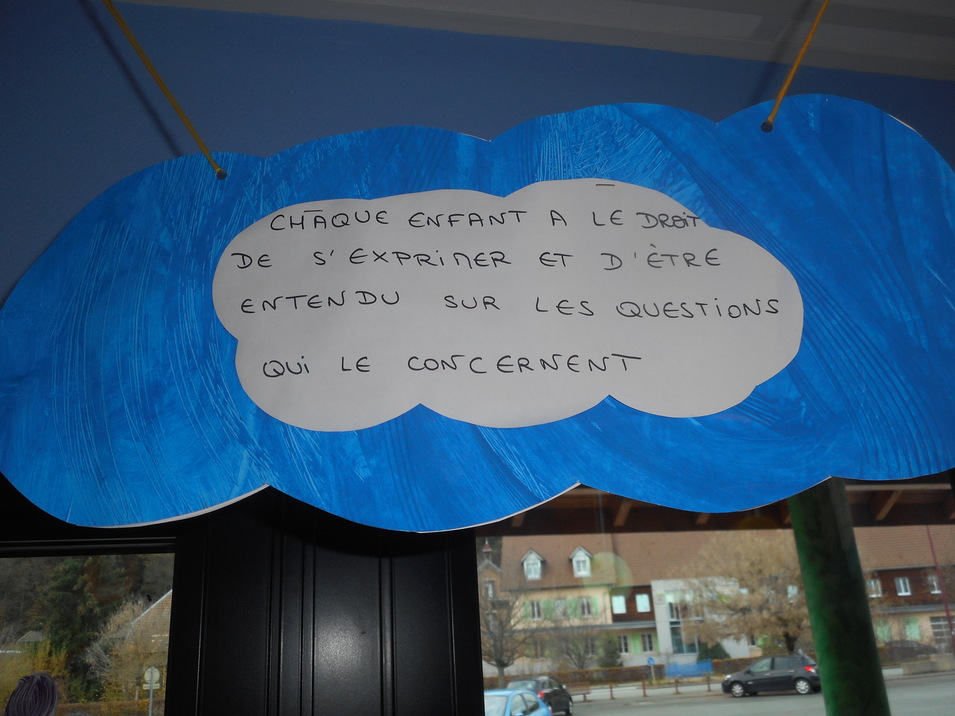 CHAQUE ENFANT A LE DROIT
DE S'EXPRIMER ET D'ÊTRE
ENTENDU SUR LES QUESTIONS
QUI LE CONCERNENT